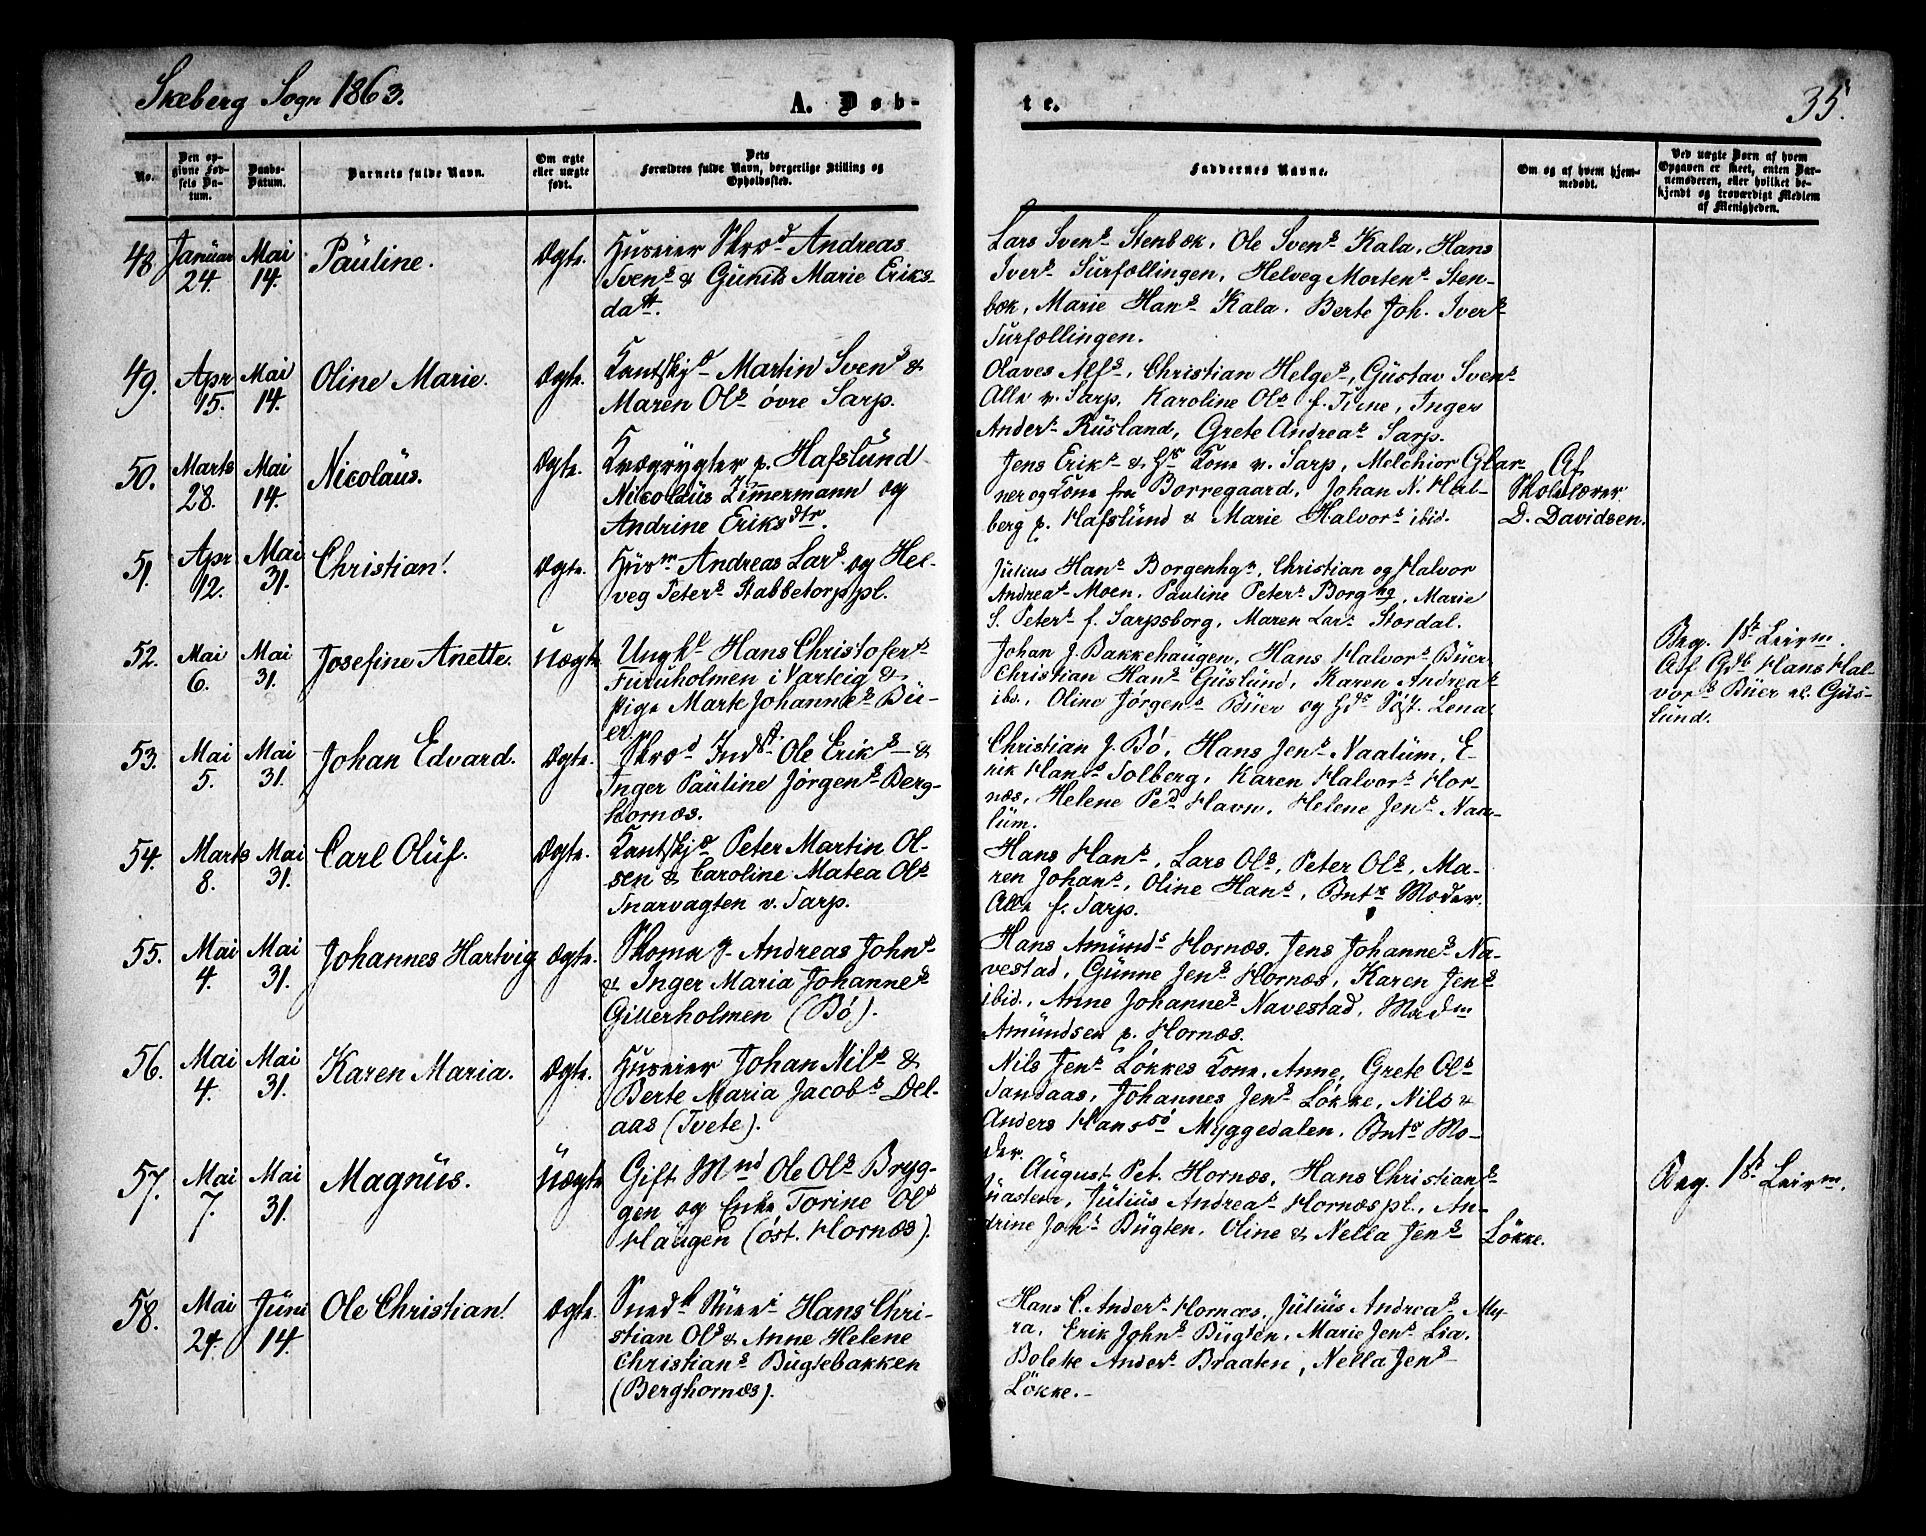 Skeberg Sogn 1863.
A. Døb-
te.
35.
No.
Den op-
givne Fød-
sels Da-
tum.
Daabs-
Datum.
Barnets fulde Navn.
Om ægte
eller uægte
født.
Dets
Forældres fulde Navn, borgerlige Stilling og
Opholdssted.
Faddernes Navne.
Om og af hvem hjem-
medøbt.
Ved uægte Børn af hvem
Opgaven er skeet, enten Bar-
nemoderen, eller hvilket be-
kjendt og troværdigt Medlem
af Menigheden.
48. Januar 24. Mai 14. Pauline. Ægte.
Huseier Skrædr Andreas
Svens & Gunild Marie Eriks-
datt.
Lars Svens Stenbæk, Ole Svens Kala, Hans
Ivers Surfællingen, Helveg Mortens Sten-
bæk, Marie Hans Kala, Berte Joh. Ivers
Surfællingen.
49. Apr 15. Mai 14. Oline Marie. Ægte.
Martin Svens &
Maren Ols øvre Sarp.
Olaves Alfs, Christian Helges, Gustav Svens
Alle v. Sarp, Karoline Ols f. Tune, Inger
Anders Rusland, Grete Andreas Sarp.
50. Marts 28. Mai 14. Nicolaus. Ægte.
Kvægrygter p. Hafslund
Nicolaus Zimmermann og
Andrine Eriksdtr.
Jens Eriks & Hs Kone v. Sarp, Melchior Glar-
ner og Kone fra Borregaard, Johan N. Hal-
berg p. Hafslund & Marie Halvors ibid.
Af
Skolelærer
D. Davidsen.
51. Apr 12. Mai 31. Christian. Ægte.
Husm Andreas Lars og Hel-
veg Peters Stabbetorp pl.
Julius Hans Borgenhgn, Christian og Halvor
Andreas Moen, Pauline Peters Borghg, Marie
S. Peters f. Sarpsborg, Maren Lars Stordal.
52. Mai 6. Mai 31. Josefine Anette. Uægte
Ungkl Hans Christofers
Furuholmen i Varteig &
Pige Marte Johannes Bu-
er.
Johan J. Bakkehaugen, Hans Halvors Buer
Christian Hans Guslund, Karen Andreas
ibs., Oline Jørgens Buer og Hds Søst. Lena.
Beg. 1st Leierm.
Af Gdb Hans Hal-
vors Buer el. Gus-
lund.
53. Mai 5. Mai 31. Johan Edvard. Ægte.
Skræd Indst. Ole Eriks &
Inger Pauline Jørgens Berg-
hornæs.
Christian J. Bø, Hans Jens Naalum, E-
rik Hans Solberg, Karen Halvors Hor-
næs, Helene Peds Havn, Helene Jens Naa-
lum.
54. Marts 8. Mai 31. Carl Oluf. Ægte.
Peter Martin Ol-
sen & Caroline Matea Ols
Snarvagten v. Sarp.
Hans Hans, Lars Ols, Peter Ols, Ma-
ren Johans, Oline Hans, Bnts Moder.
Alle f. Sarp.
55. Mai 4. Mai 31. Johannes Hartvig Ægte.
Skomag. Andreas Johns
& Inger Maria Johannes
Gillerholmen (Bø).
Hans Amunds Hornæs, Jens Johannes Na-
vestad, Gunne Jens Hornæs, Karen Jens
ibid., Anne Johannes Navestad, Madm
Amundsen p. Hornæs.
56. Mai 4. Mai 31. Karen Maria. Ægte.
Huseier Johan Nils &
Berte Maria Jacobs Del-
aas (Tvete).
Nils Jens Løkkes Kone, Anne, Grete Ols
Sandaas, Johannes Jens Løkke, Nils &
Anders Hanssø Myggedalen, Bnts Mo-
der.
57. Mai 7. Mai 31. Magnus. Uægte
Gift Mnd Ole Ols Bryg-
gen og Enke Torine Ols
Haugen (øst. Hornæs).
August Pet. Hornæs, Hans Christians
Nastern, Julius Andreas Hornæs pl., An-
drine Johs Bugten, Oline & Nella Jens Løkke.
Beg. 1st Leierm.
58. Mai 24. Juni 14. Ole Christian. Ægte.
Hans Chri-
stian Ols & Anne Helene
Christians Bugtebakken
(Berghornæs).
Hans C. Anders Hornæs, Julius Andreas My-
ra, Erik Johns Bugten, Marie Jens Lia,
Bolete Anders Braaten, Nella Jens
Løkke.